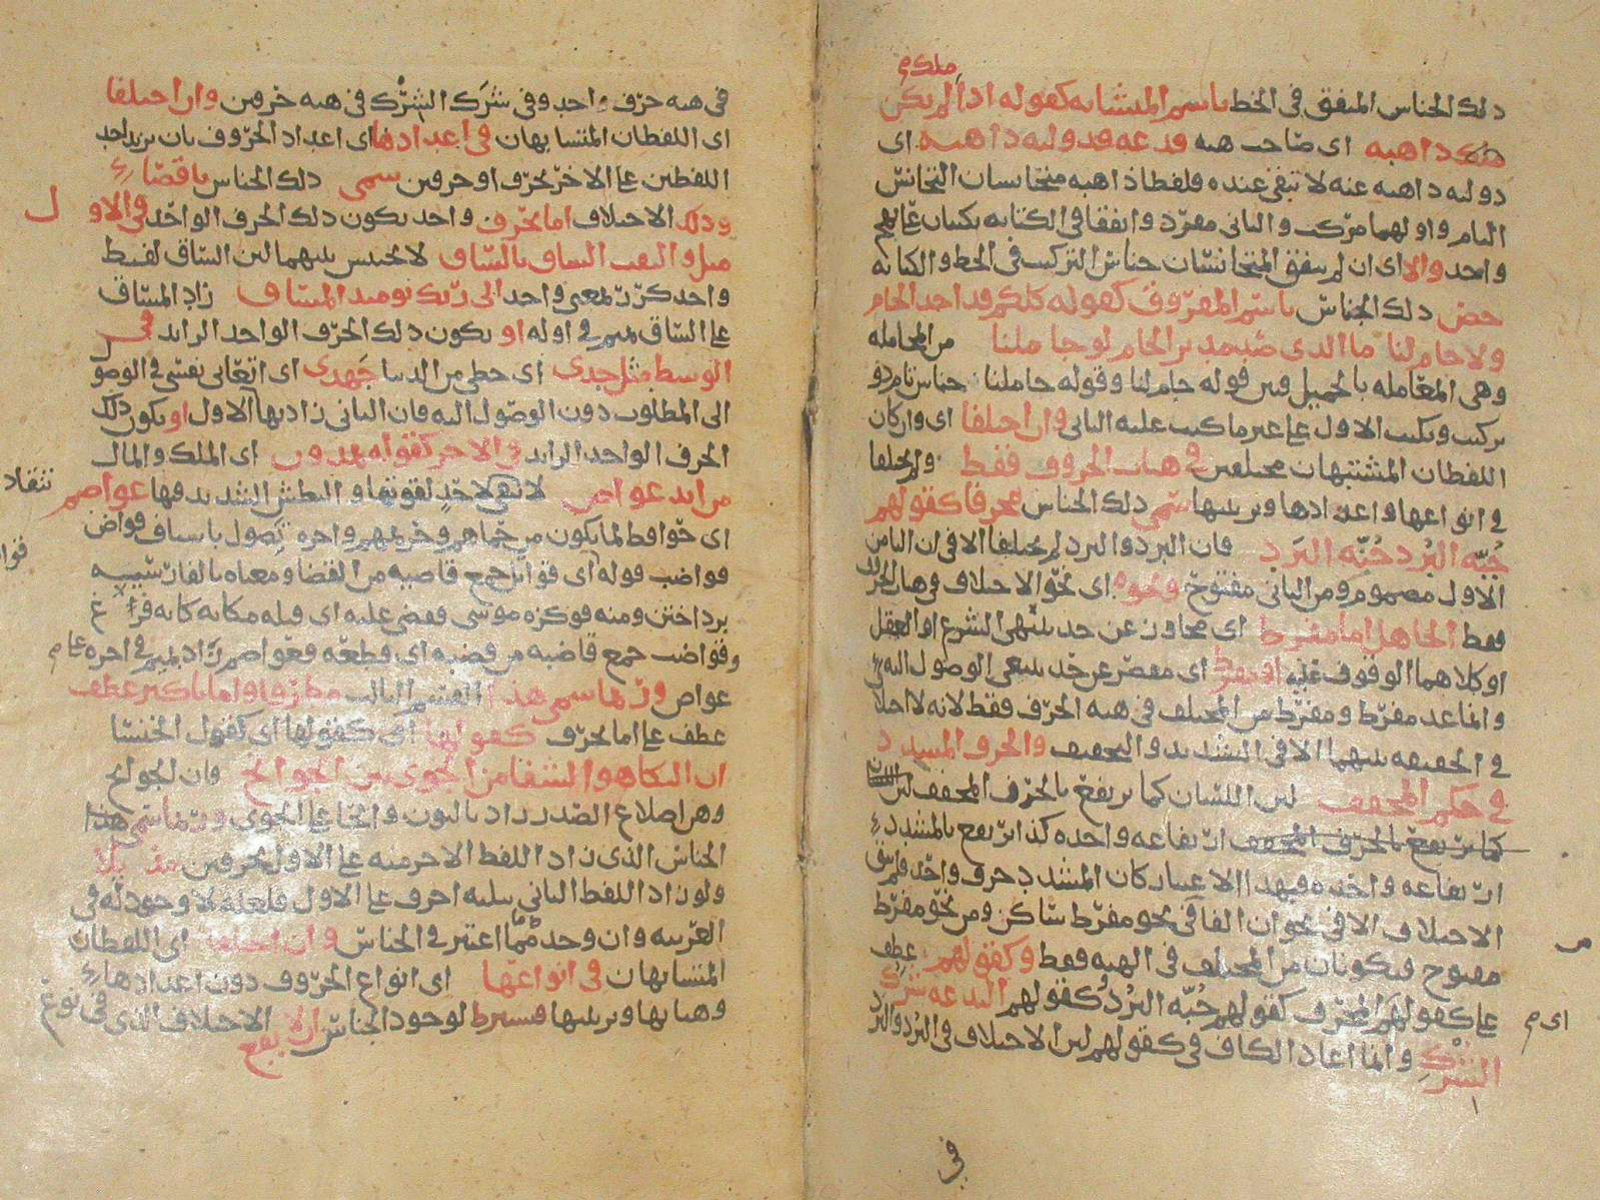 ملك م
ذلك الجناس المتفق في الخط باسم المتشابه كقوله اذا لم يكن
ملك ذاهبه اي صاحب هبه فدعه فدولته ذاهبه اي
دولته ذاهبه عنه لا تبقى عنده فلفظا ذاهبه متجانسان التجانس
التام واولهما مركب والثاني مفرد واتفقا في الكتابه
واحد والا اي ان لم يتفق المتجانسان جناس التركيب في الخط والكتابه
خص ذلك الجناس باسم المفروق كقوله كلكم قد اخذ الجام
ولا جام لنا ما الذي ضر مدير الجام لو جاملنا من المجامله
وهي المعامله بالجميل فبين قوله جام لنا وقوله جاملنا جناس تام ذو
تركيب وكتب الاول على غير ما كتب عليه الثاني وان اختلفا اي وان كان
اللفظان المتشبهان مختلفين في هيات الحروف فقط ولم يختلفا
في انواعها واعدادها وترتيبها سمي ذلك الجناس محرفا كقولهم
جُبّه البُرد جُنّه البَرد فان البرد والبرد لم يختلفا الا في ان البا من
الاول مضموم ومن الثاني مفتوح ونحوه اي نحو الاختلاف في هيات الحرف
فقط الجاهل اما مفرط اي مجاوز عن حد ينتهي الشرع او العقل
او كلاهما الوقوف عليه او مفرط اي مقصر عن حد ينبغي الوصول اليه
وانما عد مفرط ومفرّط من المختلف في هيه الحرف فقط لانه لا اختلاف
في الحقيقه بينهما الا في التشديد والتخفيف والحرف المشدد
في حكم المخفف لان اللسان كما يرتفع بالحرف المخفف
كما يرتفع بالحرف المخفف ارتفاعه واحده كذا يرتفع بالمشدد
ارتفاعه واحده فبهذا الاعتبار كان المشدد حرف واحد فلم يبق
الاختلاف الا في نحو ان الفا في نحو مفرط ساكن ومن نحو مفرّط
مفتوح فيكونان من المختلف في الهيه فقط وكقولهم عطف
على كقولهم المحرف كقولهم جُبّه البُرد كقولهم البدعه شَرَك
الشِّرك وانما اعاد الكاف في كقولهم لان الاختلاف في البُرد والبَرد
اي م
في
في هيه حرف واحد وفي شَرَك الشِّرك في هيه حرفين وان اختلفا
اي اللفظان المتشابهان في اعدادها اي اعداد الحروف بان يزيد احد
اللفظين على الاخر بحرف او حرفين سمي ذلك الجناس ناقصا
وذلك الاختلاف اما بحرف واحد يكون ذلك الحرف الواحد في الاول
مثل والتفت الساق بالساق لا تجنيس بينهما لان الساق لفظ
واحد كرر لمعنى واحد الى ربك يومئذ المساق زاد المساق
على الساق بميم في اوله او يكون ذلك الحرف الواحد الزايد في
الوسط مثل جدي اي حظي من الدنيا جَهدي اي اتعابي نفسي في الوصول
الى المطلوب دون الوصول اليه فان الثاني زاد بها الاول او يكون ذلك
الحرف الواحد الزايد في الاخر كقوله يمدون اي الملك والمال
من ايد عواص لا تنقاد لاحدٍ لقوتها والبطش الشديد فيها عواصم
اي حوافظ لما يكون من حماهم وحريمهم واخره تصول باسياف قواض
قواضب قوله اي قواض جمع قاضيه من القضا ومعناه بالفارسيه
برداختن ومنه فوكزه موسى فقضى عليه اي قتله
وقواضب جمع قاضبه من قضبه اي قطعه فعواصم زاد بميم في اخره على
عواص وربما سمي هذا القسم الثالث مطرفا واما باكثر عطف
عطف على اما بحرف كقولها اي كقول الخنسا
ان البكا هو الشفا من الجوى بين الجوانح فان الجوانح
وهي اضلاع الصدر زاد بالنون والحا على الجوى وربما سمي هذا
الجناس الذي زاد اللفظ الاخر منه على الاول بحرفين مذيلا
ولو زاد اللفظ الثاني بثلثه احرف على الاول فلعله لا وجود له في
العربيه وان وجد مما اعتبر في الجناس وان اختلفا اي اللفظان
المتشابهان في انواعها اي انواع الحروف دون اعدادها
وهياتها وترتيبها فيشترط لوجود الجناس ان لا يقع الاختلاف الذي في نوع
تنقاد